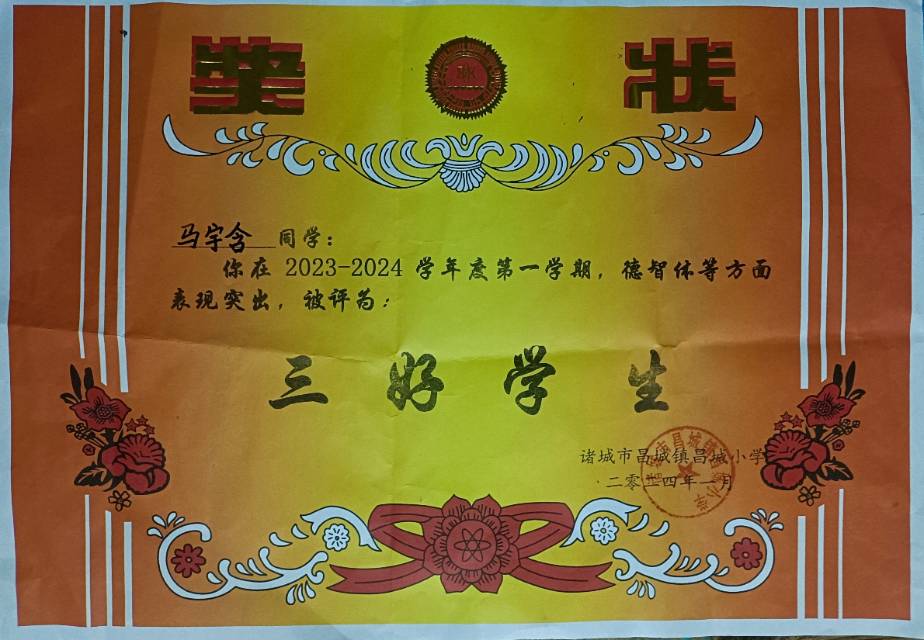 奖状
马宇含 同学：
你在 2023-2024 学年度第一学期，德智体等方面
表现突出，被评为：
三好学生
诸城市昌城镇昌城小学
二零二四年一月